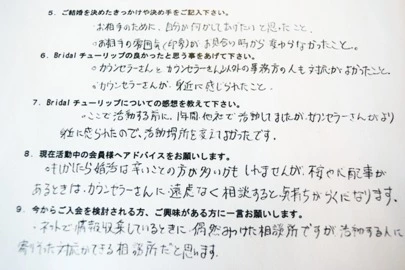 5. ご結婚を決めたきっかけや決め手をご記入下さい。
・お相手のために、自分が何かしてあげたいと思ったこと。
・お相手の雰囲気(印象)がお見合い時から変わらなかったこと。
6. Bridal チューリップの良かったと思う事をあげて下さい。
・カウンセラーさんとカウンセラーさん以外の事務方の人も対応がよかったこと。
・カウンセラーさんが、身近に感じられたこと。
7. Bridal チューリップについての感想を教えて下さい。
・ここで活動する前に、1年間、他社で活動しましたが、カウンセラーさんがより
身近に感じられたので、活動場所を変えてよかったです。
8. 現在活動中の会員様へアドバイスをお願いします。
・もしかしたら婚活は辛いことの方が多いかもしれませんが、桜や心配事が
あるときは、カウンセラーさんに遠慮なく相談すると気持ちがらくになります。
9. 今からご入会を検討される方、ご興味がある方に一言お願いします。
・ネットで情報収集しているときに、偶然みつけた相談所ですが活動する人に
寄り添った対応ができる相談所だと思います。